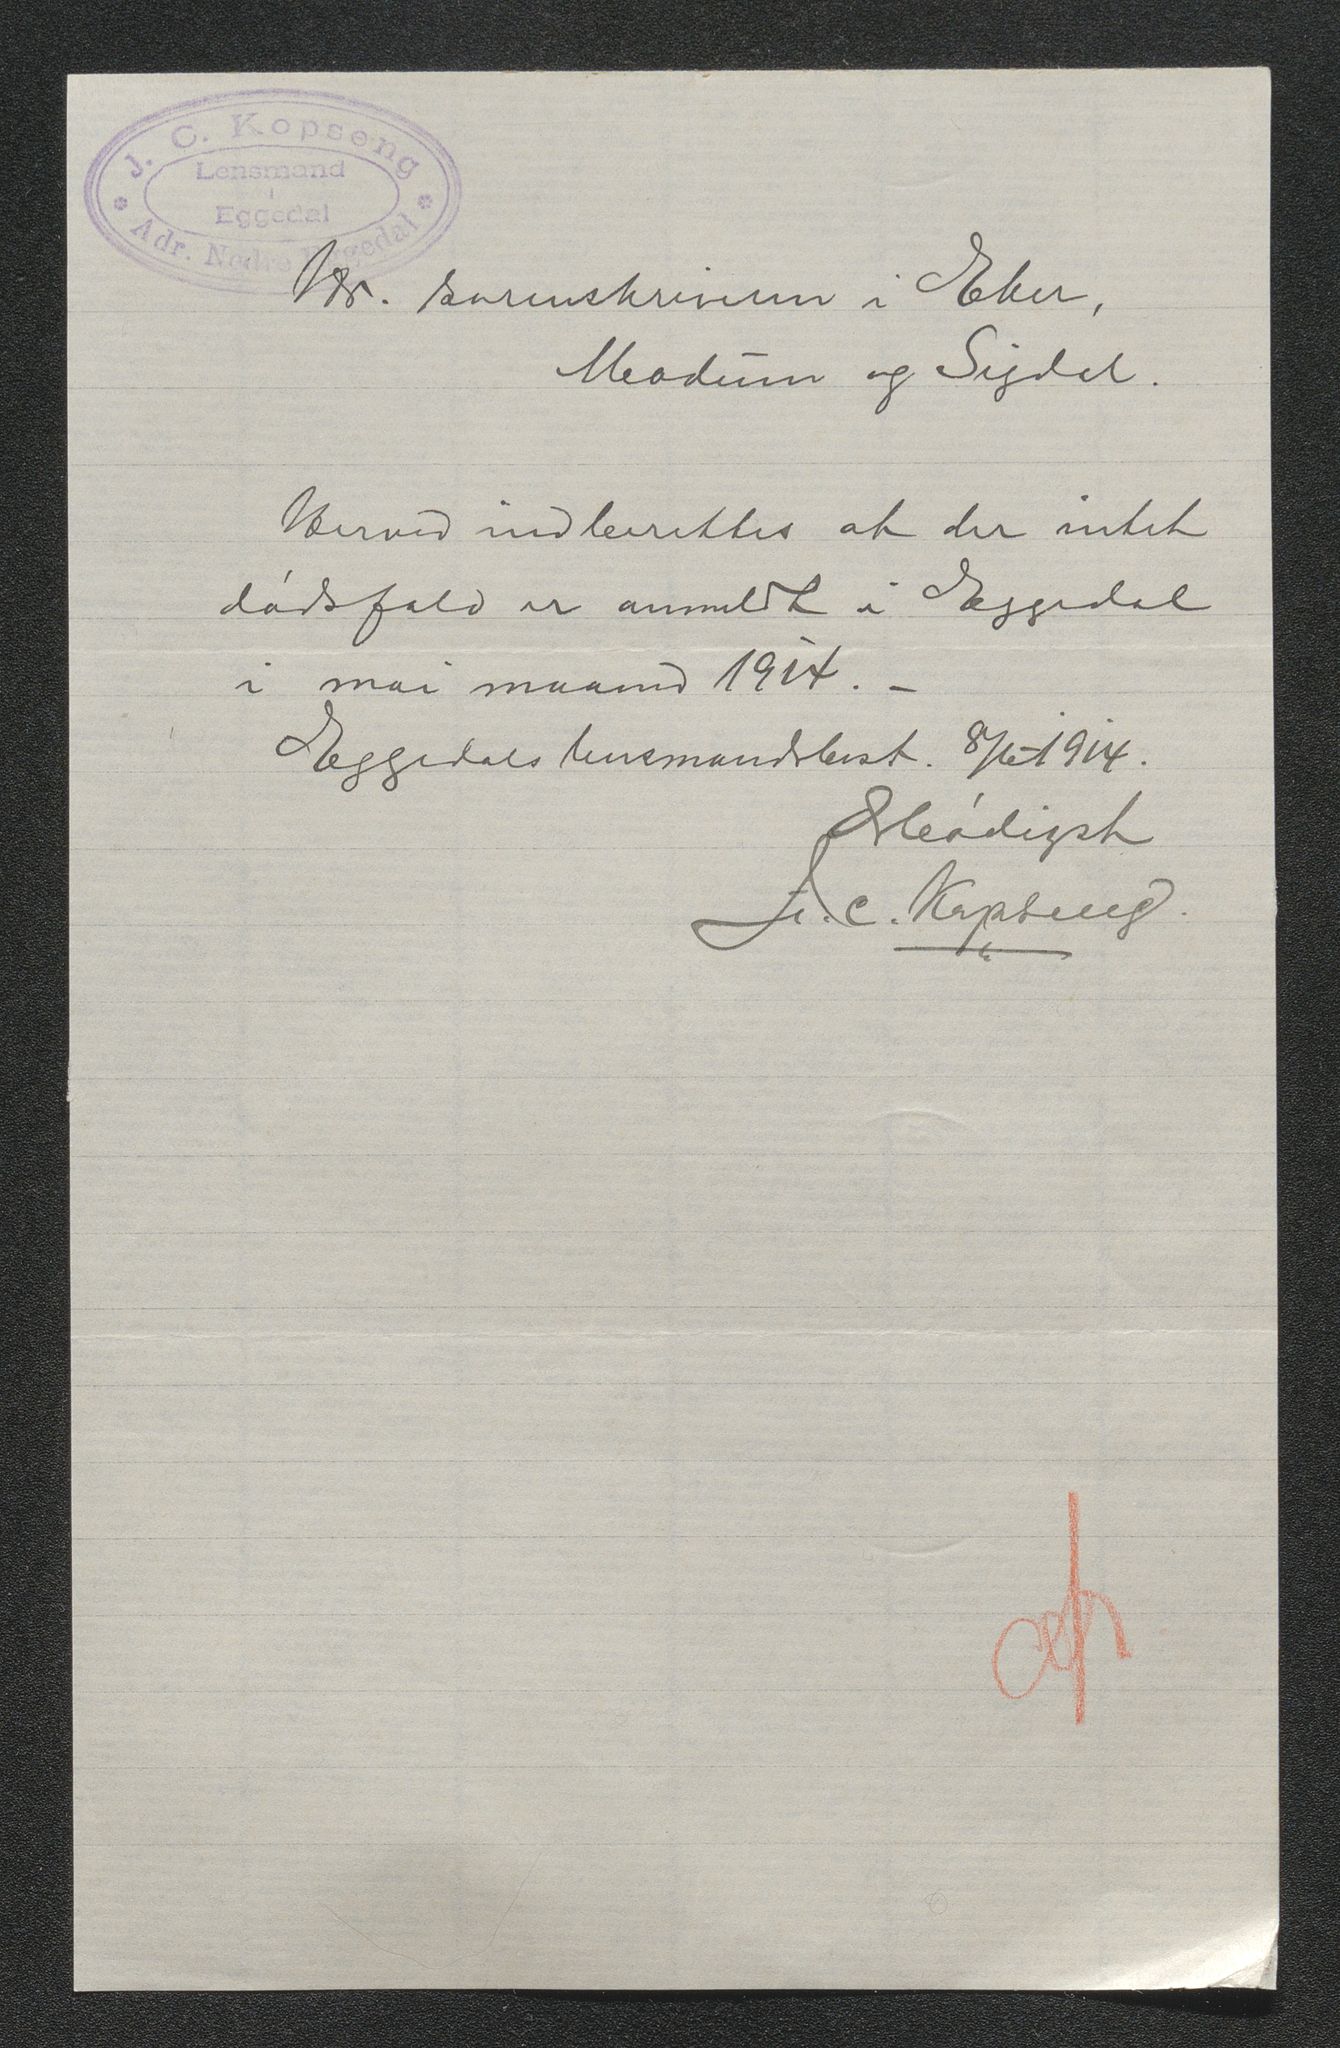 J. C. Kopseng
Lensmand
i
Eggedal
Adr. Nedre Eggedal
Hr. sorenskriveren i Eker,
Modum og Sigdal.
Herved indberettes at der intet
dødsfald er anmeldt i Eggedal
i mai maaned 1914. -
Eggedals lensmandsbest. 8/6-1914.
Ærbødigst
J. C. Kopseng